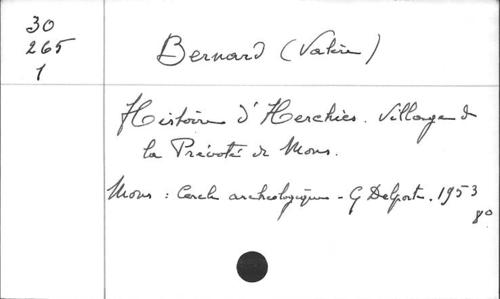 30
265
1
Bernard (Valère)
Histoire d'Herchies. Village de
la Prévoté de Mons.
Mons : Cercle archéologique - G Delporte. 1953
8º